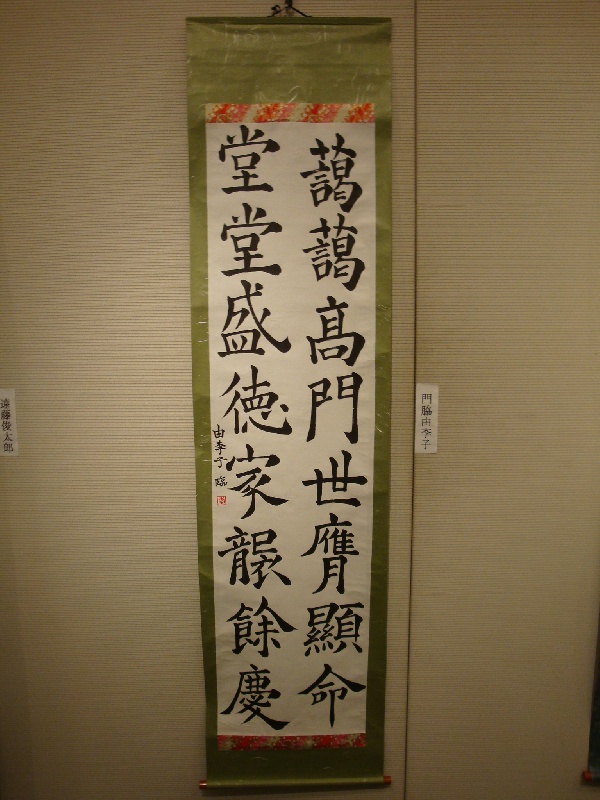 藹藹高門世膺顯命
堂堂盛徳家襲餘慶
由季子 臨
門脇由季子
遠藤俊太郎